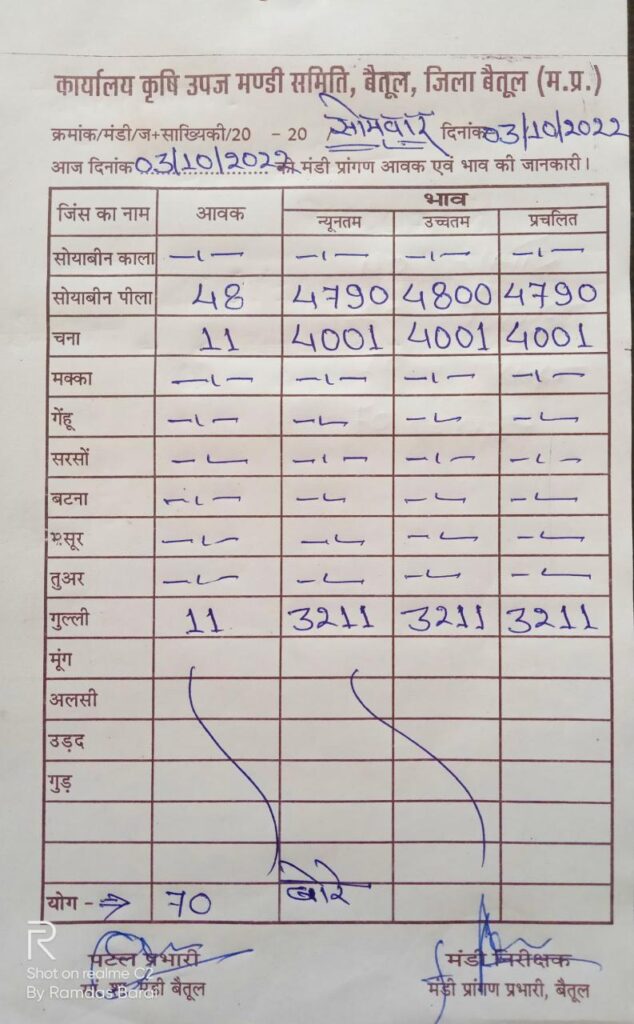 कार्यालय कृषि उपज मण्डी समिति, बैतूल, जिला बैतूल (म.प्र.)
क्रमांक/मंडी/ज+साख्यिकी/20 - 20 /सोमवार दिनांक 03/10/2022
आज दिनांक 03/10/2022 की मंडी प्रांगण आवक एवं भाव की जानकारी।
जिंस का नाम आवक भाव
न्यूनतम उच्चतम प्रचलित
सोयाबीन काला -।- -।- -।- -।-
सोयाबीन पीला 48 4790 4800 4790
चना 11 4001 4001 4001
मक्का -।- -।- -।- -।-
गेंहू -।- -।- -।- -।-
सरसों -।- -।- -।- -।-
बटना -।- -।- -।- -।-
मसूर -।- -।- -।- -।-
तुअर -।- -।- -।- -।-
गुल्ली 11 3211 3211 3211
मूंग
अलसी
उड़द
गुड़
योग - → 70 बोरे
पटल प्रभारी मंडी निरीक्षक
मंडी बैतूल मंडी प्रांगण प्रभारी, बैतूल
R
Shot on realme C2
By Ramdas Bara